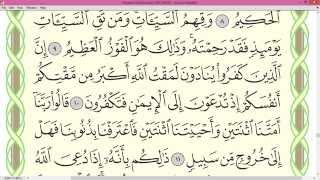 ٱلْحَكِيمُ ٨ وَقِهِمُ ٱلسَّيِّـَٔاتِ وَمَن تَقِ ٱلسَّيِّـَٔاتِ
يَوْمَئِذٍ فَقَدْ رَحِمْتَهُۥ وَذَٰلِكَ هُوَ ٱلْفَوْزُ ٱلْعَظِيمُ ٩ إِنَّ
ٱلَّذِينَ كَفَرُوا۟ يُنَادَوْنَ لَمَقْتُ ٱللَّهِ أَكْبَرُ مِن مَّقْتِكُمْ
أَنفُسَكُمْ إِذْ تُدْعَوْنَ إِلَى ٱلْإِيمَٰنِ فَتَكْفُرُونَ ١٠ قَالُوا۟ رَبَّنَآ
أَمَتَّنَا ٱثْنَتَيْنِ وَأَحْيَيْتَنَا ٱثْنَتَيْنِ فَٱعْتَرَفْنَا بِذُنُوبِنَا فَهَلْ
إِلَىٰ خُرُوجٍ مِّن سَبِيلٍ ١١ ذَٰلِكُم بِأَنَّهُۥٓ إِذَا دُعِىَ ٱللَّهُ